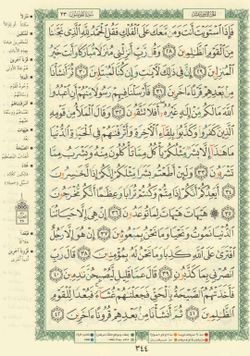 سُورَةُ المُؤْمِنُونَ ٢٣
فَإِذَا ٱسْتَوَيْتَ أَنتَ وَمَن مَّعَكَ عَلَى ٱلْفُلْكِ فَقُلِ ٱلْحَمْدُ لِلَّهِ ٱلَّذِى نَجَّىٰنَا
مِنَ ٱلْقَوْمِ ٱلظَّٰلِمِينَ ٢٨ وَقُل رَّبِّ أَنزِلْنِى مُنزَلًا مُّبَارَكًا وَأَنتَ خَيْرُ
ٱلْمُنزِلِينَ ٢٩ إِنَّ فِى ذَٰلِكَ لَـَٔايَٰتٍ وَإِن كُنَّا لَمُبْتَلِينَ ٣٠ ثُمَّ أَنشَأْنَا
مِنۢ بَعْدِهِمْ قَرْنًا ءَاخَرِينَ ٣١ فَأَرْسَلْنَا فِيهِمْ رَسُولًا مِّنْهُمْ أَنِ ٱعْبُدُوا۟
ٱللَّهَ مَا لَكُم مِّنْ إِلَٰهٍ غَيْرُهُۥٓ أَفَلَا تَتَّقُونَ ٣٢ وَقَالَ ٱلْمَلَأُ مِن قَوْمِهِ
ٱلَّذِينَ كَفَرُوا۟ وَكَذَّبُوا۟ بِلِقَآءِ ٱلْـَٔاخِرَةِ وَأَتْرَفْنَٰهُمْ فِى ٱلْحَيَوٰةِ ٱلدُّنْيَا
مَا هَٰذَآ إِلَّا بَشَرٌ مِّثْلُكُمْ يَأْكُلُ مِمَّا تَأْكُلُونَ مِنْهُ وَيَشْرَبُ مِمَّا
تَشْرَبُونَ ٣٣ وَلَئِنْ أَطَعْتُم بَشَرًا مِّثْلَكُمْ إِنَّكُمْ إِذًا لَّخَٰسِرُونَ
٣٤ أَيَعِدُكُمْ أَنَّكُمْ إِذَا مِتُّمْ وَكُنتُمْ تُرَابًا وَعِظَٰمًا أَنَّكُم مُّخْرَجُونَ
٣٥ هَيْهَاتَ هَيْهَاتَ لِمَا تُوعَدُونَ ٣٦ إِنْ هِىَ إِلَّا حَيَاتُنَا
ٱلدُّنْيَا نَمُوتُ وَنَحْيَا وَمَا نَحْنُ بِمَبْعُوثِينَ ٣٧ إِنْ هُوَ إِلَّا رَجُلٌ
ٱفْتَرَىٰ عَلَى ٱللَّهِ كَذِبًا وَمَا نَحْنُ لَهُۥ بِمُؤْمِنِينَ ٣٨ قَالَ رَبِّ
ٱنصُرْنِى بِمَا كَذَّبُونِ ٣٩ قَالَ عَمَّا قَلِيلٍ لَّيُصْبِحُنَّ نَٰدِمِينَ ٤٠
فَأَخَذَتْهُمُ ٱلصَّيْحَةُ بِٱلْحَقِّ فَجَعَلْنَٰهُمْ غُثَآءً فَبُعْدًا لِّلْقَوْمِ
ٱلظَّٰلِمِينَ ٤١ ثُمَّ أَنشَأْنَا مِنۢ بَعْدِهِمْ قُرُونًا ءَاخَرِينَ ٤٢
٣٤٤